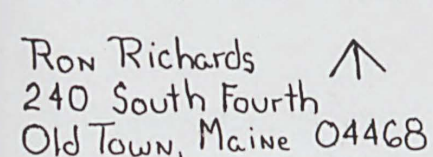 Ron Richards
240 South Fourth
Old Town, Maine 04468